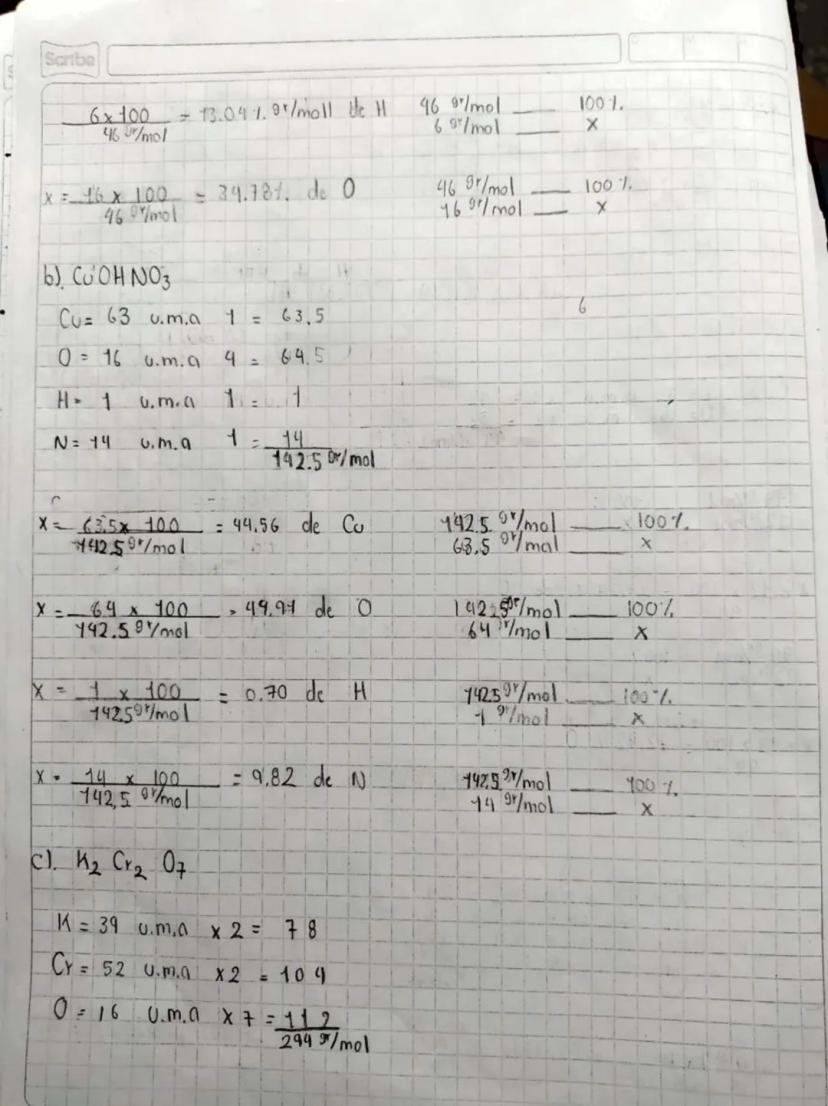 Scribe
6 x 100 / 46 gr/mol = 13.04 %. gr/moll de H 46 gr/mol ___ 100 %.
6 gr/mol ___ x
x = 16 x 100 / 46 gr/mol = 34.78 %. de O 46 gr/mol ___ 100 %.
16 gr/mol ___ x
b). CuOHNO3
Cu= 63 u.m.a 1 = 63.5
6
O = 16 u.m.a 4 = 64.5
H = 1 u.m.a 1 = 1
N = 14 u.m.a 1 = 14
142.5 gr/mol
x = 63.5 x 100 / 142.5 gr/mol = 44.56 de Cu 142.5 gr/mol ___ 100 %.
63.5 gr/mol ___ x
x = 64 x 100 / 142.5 gr/mol = 49.91 de O 142.5 gr/mol ___ 100 %.
64 gr/mol ___ x
x = 1 x 100 / 142.5 gr/mol = 0.70 de H 142.5 gr/mol ___ 100 %.
1 gr/mol ___ x
x = 14 x 100 / 142,5 gr/mol = 9.82 de N 142.5 gr/mol ___ 100 %.
14 gr/mol ___ x
c). K2 Cr2 O7
K = 39 u.m.a x 2 = 78
Cr = 52 u.m.a x 2 = 104
O = 16 u.m.a x 7 = 112
294 gr/mol